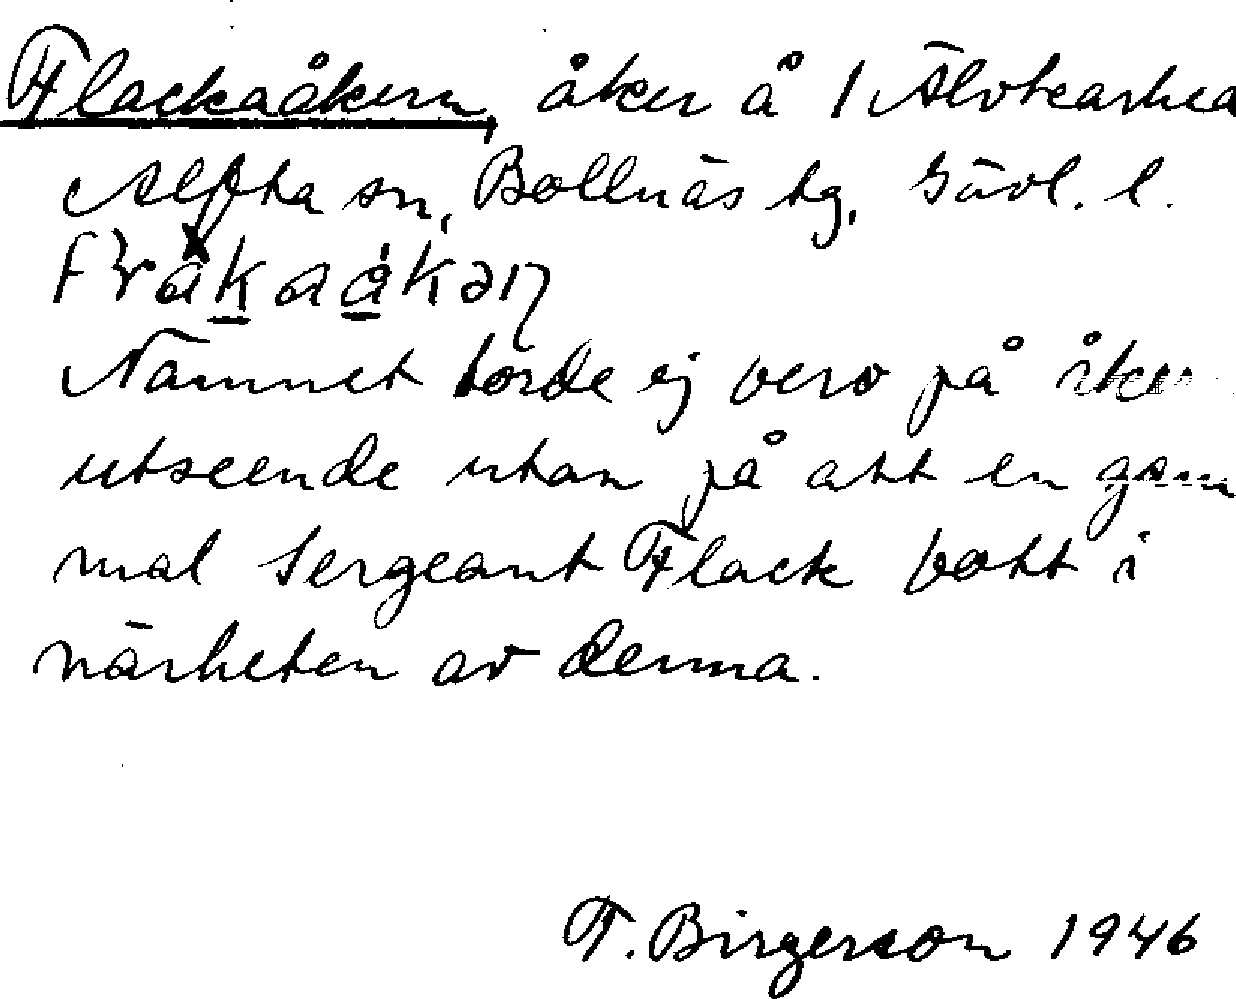 Flackaåkern, åker å 1 Älvkarhed
Alfta sn, Bollnäs tg, Gävl. l.
Nämnet torde ej bero på åker
utseende utan på att en gam
mal sergeant Flack bott i
närheten av denna.
F. Birgerson 1946